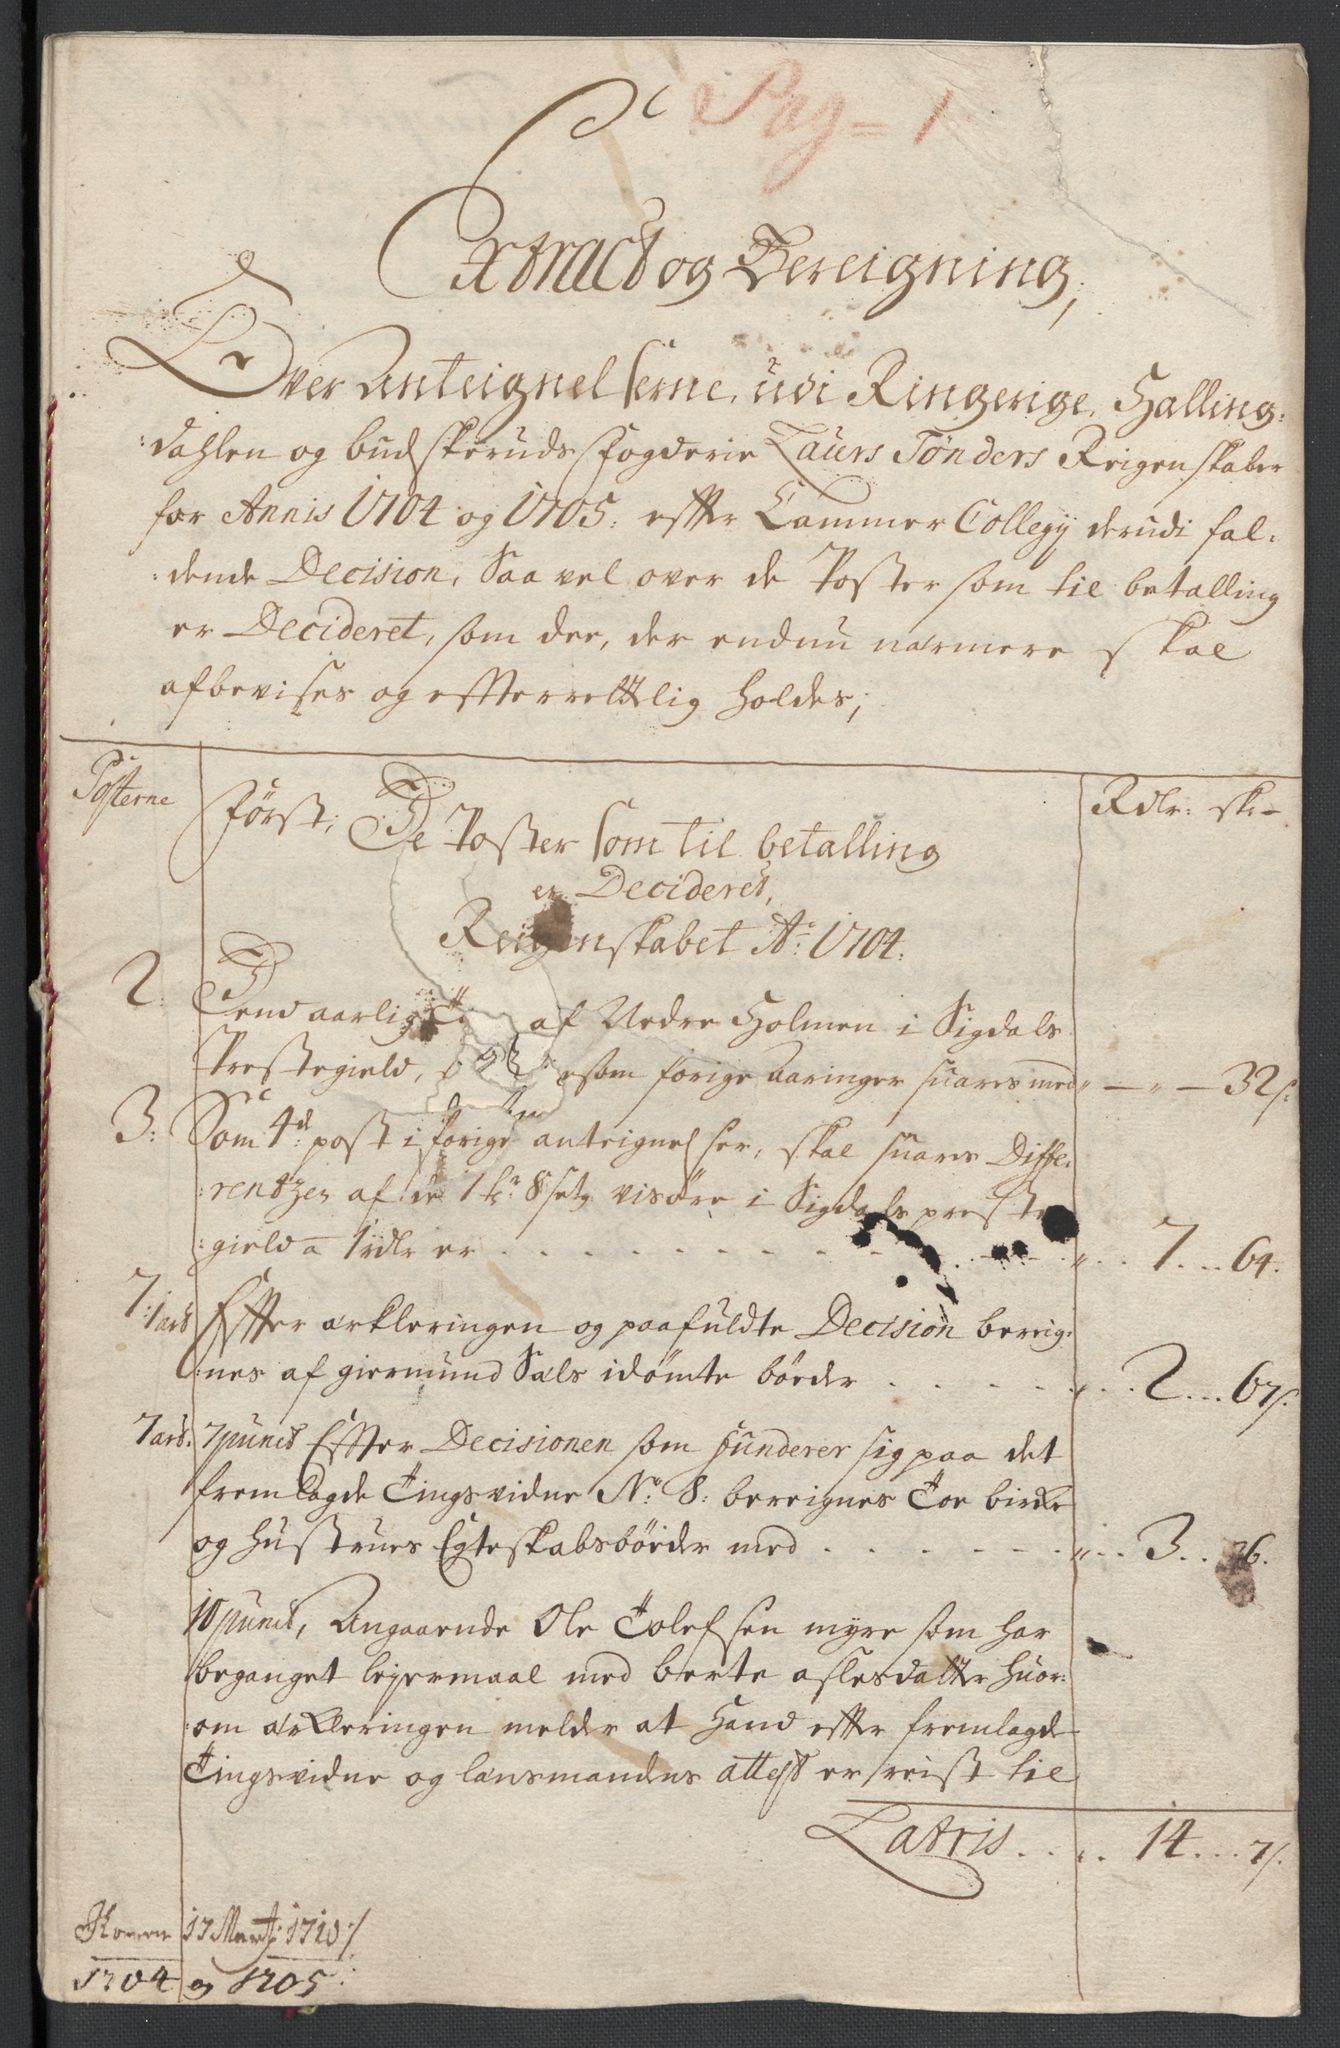 Pag = 1
Extract og Bereigning,
Over Anteignelserne, udi Ringerige, Halling:
:dahlen og Budskeruds Fogderie Laurs Tønders Reigenskaber
for Annis 1704 og 1705: effter Cammer Collegy derudi fal:
:dende Decision, Saa vel over de Poster som til betalling
er Decideret, som dee, der endnu nærmere skal
afbevises og effterrettlig holdes;
Posterne
Rdlr: sk:
Først, De Poster som til betalling
er Decideret,
Reigenskabet Ao: 1704.
2. Dend aarlig af Nedre Holmen i Sigdals
Prestegield, som forrige Aaringer suares med " — " — 32 s:
3: Som 4de post i forige anteignelser, skal suares Diffe:
:rentzen af de 1 hr 8 setg visøre i Sigdals preste
:gield a 1 rdlr er . . . 7 . . 64.
7: 1art Effter erkleringen og paafuldte Decision bereig:
:nes af giermund Sæls idømte bøeder . . . 2 . . 67 s.
7 art. 7 punct Effter Decisionen som funderer sig paa det
fremlagde Tingsvidne No: 8: bereignes Toe birke
og hustrues Egteskabsbøeder med . . . 3 . . 36.
10 punct, Angaaende Ole Tolefsen myre som har
beganget leyermaal med berte aslesdatter huor:
:om erkleringen melder at hand effter fremlagde
Tingsvidne og lænsmandens attest er reist til
Latris . . . 14 . . . 7 s.
17 Martj: 1710 /
1704 og 1705: